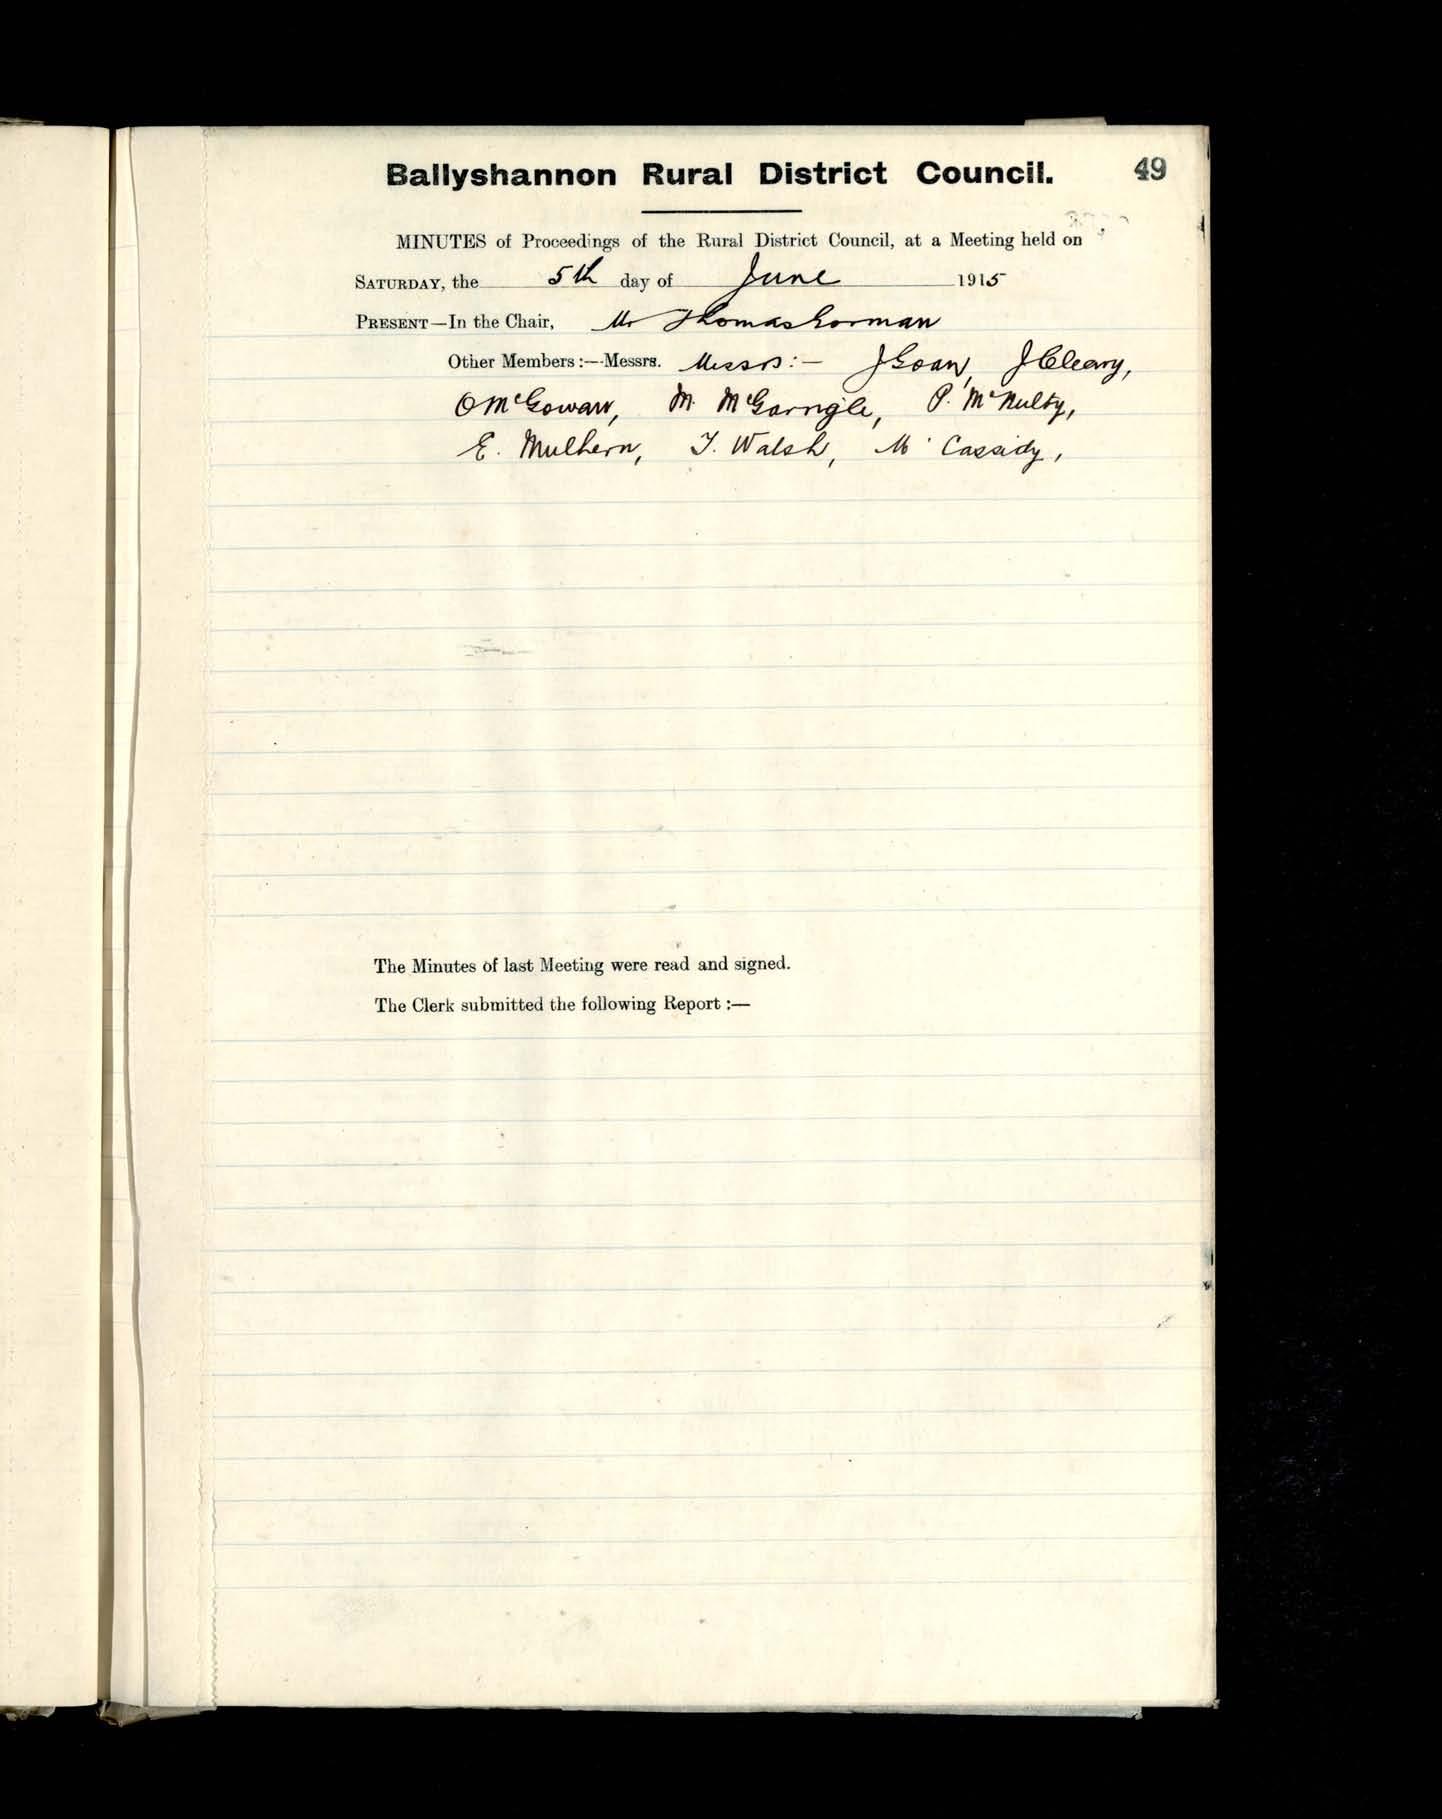 Ballyshannon Rural District Council. 49
MINUTES of Proceedings of the Rural District Council, at a Meeting held on
SATURDAY, the 5th day of June 1915
PRESENT—In the Chair, Mr Thomas Gorman
Other Members:—Messrs. Messrs:— J Goan, J Cleary,
O McGowan, M. McGarrigle, P. McNulty,
E. Mulhern, T. Walsh, M Cassidy,
The Minutes of last Meeting were read and signed.
The Clerk submitted the following Report:—